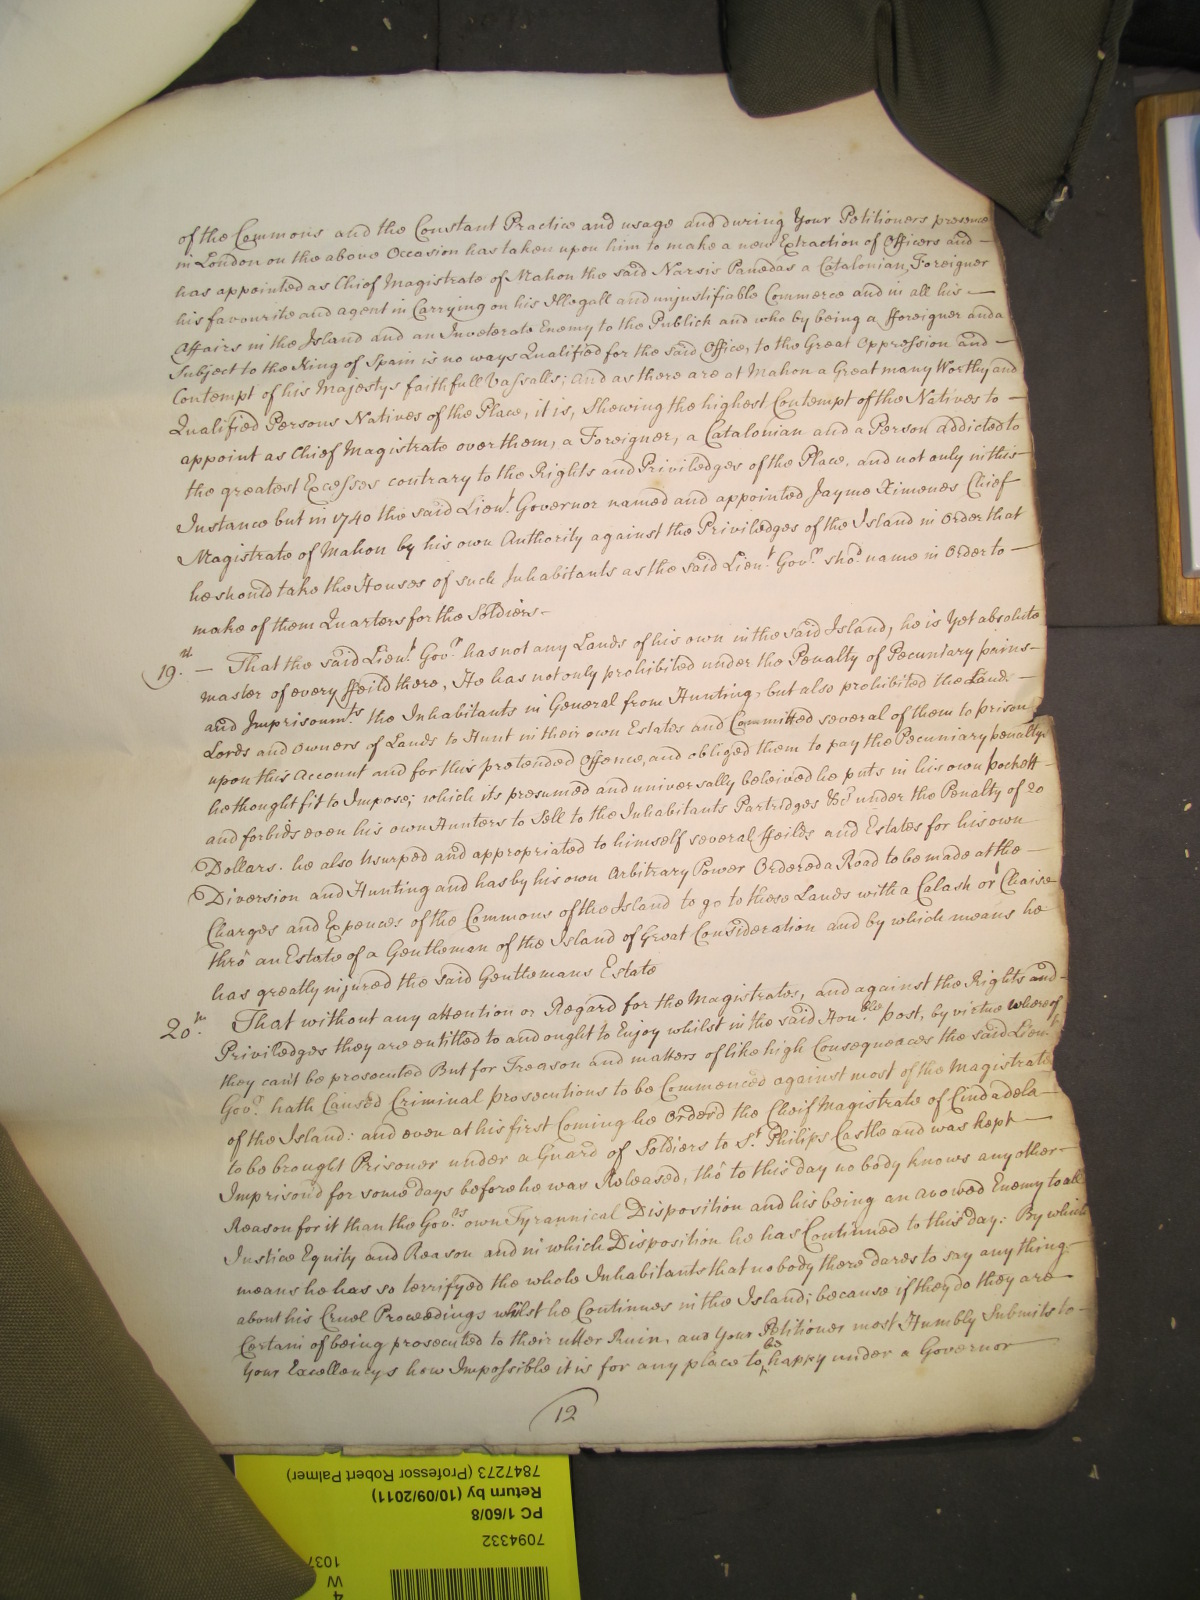 of the Commons and the Constant Practice and usage and during Your Petitioners presence
in London on the above Occasion has taken upon him to make a new Extraction of Officers and -
has appointed as Chief Magistrate of Mahon the said Narsis Panedas a Catalonian, Foreigner
his favourite and agent in Carrying on his Illegall and unjustifiable Commerce and in all his -
Affairs in the Island and an Inveterate Enemy to the Publick and who by being a fforeigner and a
Subject to the King of Spain is no ways Qualified for the said Office, to the Great Oppression and -
Contempt of his Majestys faithfull Vassalls; And as there are at Mahon a Great many Worthy and
Qualified Persons Natives of the Place, it is, Shewing the highest Contempt of the Natives to -
appoint as Chief Magistrate over them, a Foreigner, a Catalonian and a Person addicted to
the greatest Excesses contrary to the Rights and Priviledges of the Place, and not only in this
Instance but in 1740 the said Lieut. Governor named and appointed Jayme Ximenes Chief
Magistrate of Mahon by his own Authority against the Priviledges of the Island in Order that
he should take the Houses of such Inhabitants as the said Lieut. Govr. shod. name in Order to -
make of them Quarters for the Soldiers -
19.th - That the said Lieut. Govr. has not any Lands of his own in the said Island, he is Yet absolute
master of every ffeild there, He has not only prohibited under the Penalty of Pecuniary pains -
and Imprisonmts. the Inhabitants in General from Hunting, but also prohibited the Lands -
Lords and Owners of Lands to Hunt in their own Estates and Committed several of them to prison
upon this Account and for this pretended Offence, and obliged them to pay the Pecuniary penaltys
he thought fit to Impose; which its presumed and universally beleived he puts in his own pockett -
and forbids even his own Hunters to Sell to the Inhabitants Partridges &c. under the Penalty of 20
Dollars. he also Usurped and appropriated to himself several ffeilds and Estates for his own
Diversion and Hunting and has by his own Arbitrary Power Ordered a Road to be made at the -
Charges and Expences of the Commons of the Island to go to these Lands with a Calash or Chaise
thro' an Estate of a Gentleman of the Island of Great Consideration and by which means he
has greatly injured the said Gentlemans Estate
20.th That without any attention or Regard for the Magistrates, and against the Rights and -
Priviledges they are entitled to and ought to Enjoy whilst in the said Honble. post, by virtue whereof
they can't be prosecuted But for Treason and matters of like high Consequences the said Lieut.
Govr. hath Caused Criminal prosecutions to be Commenced against most of the Magistrates
of the Island: and even at his first Coming he Orderd the Cheif Magistrate of Ciudadela -
to be brought Prisoner under a Guard of Soldiers to St. Philips Castle and was kept -
Imprison'd for some days before he was Released, tho' to this day no body knows any other -
Reason for it than the Govrs. own Tyrannical Disposition and his being an avowed Enemy to all
Justice Equity and Reason and in which Disposition he has Continued to this day: By which
means he has so terrifyed the whole Inhabitants that no body there dares to say any thing -
about his Cruel Proceedings whilst he Continues in the Island; because if they do they are -
Certain of being prosecuted to their utter Ruin, and Your Petitioner most Humbly Submits to -
Your Excellencys how Impossible it is for any place to be happy under a Governor
12
7094332
PC 1/60/8
Return by (10/09/2011)
7847273 (Professor Robert Palmer)
W
1037